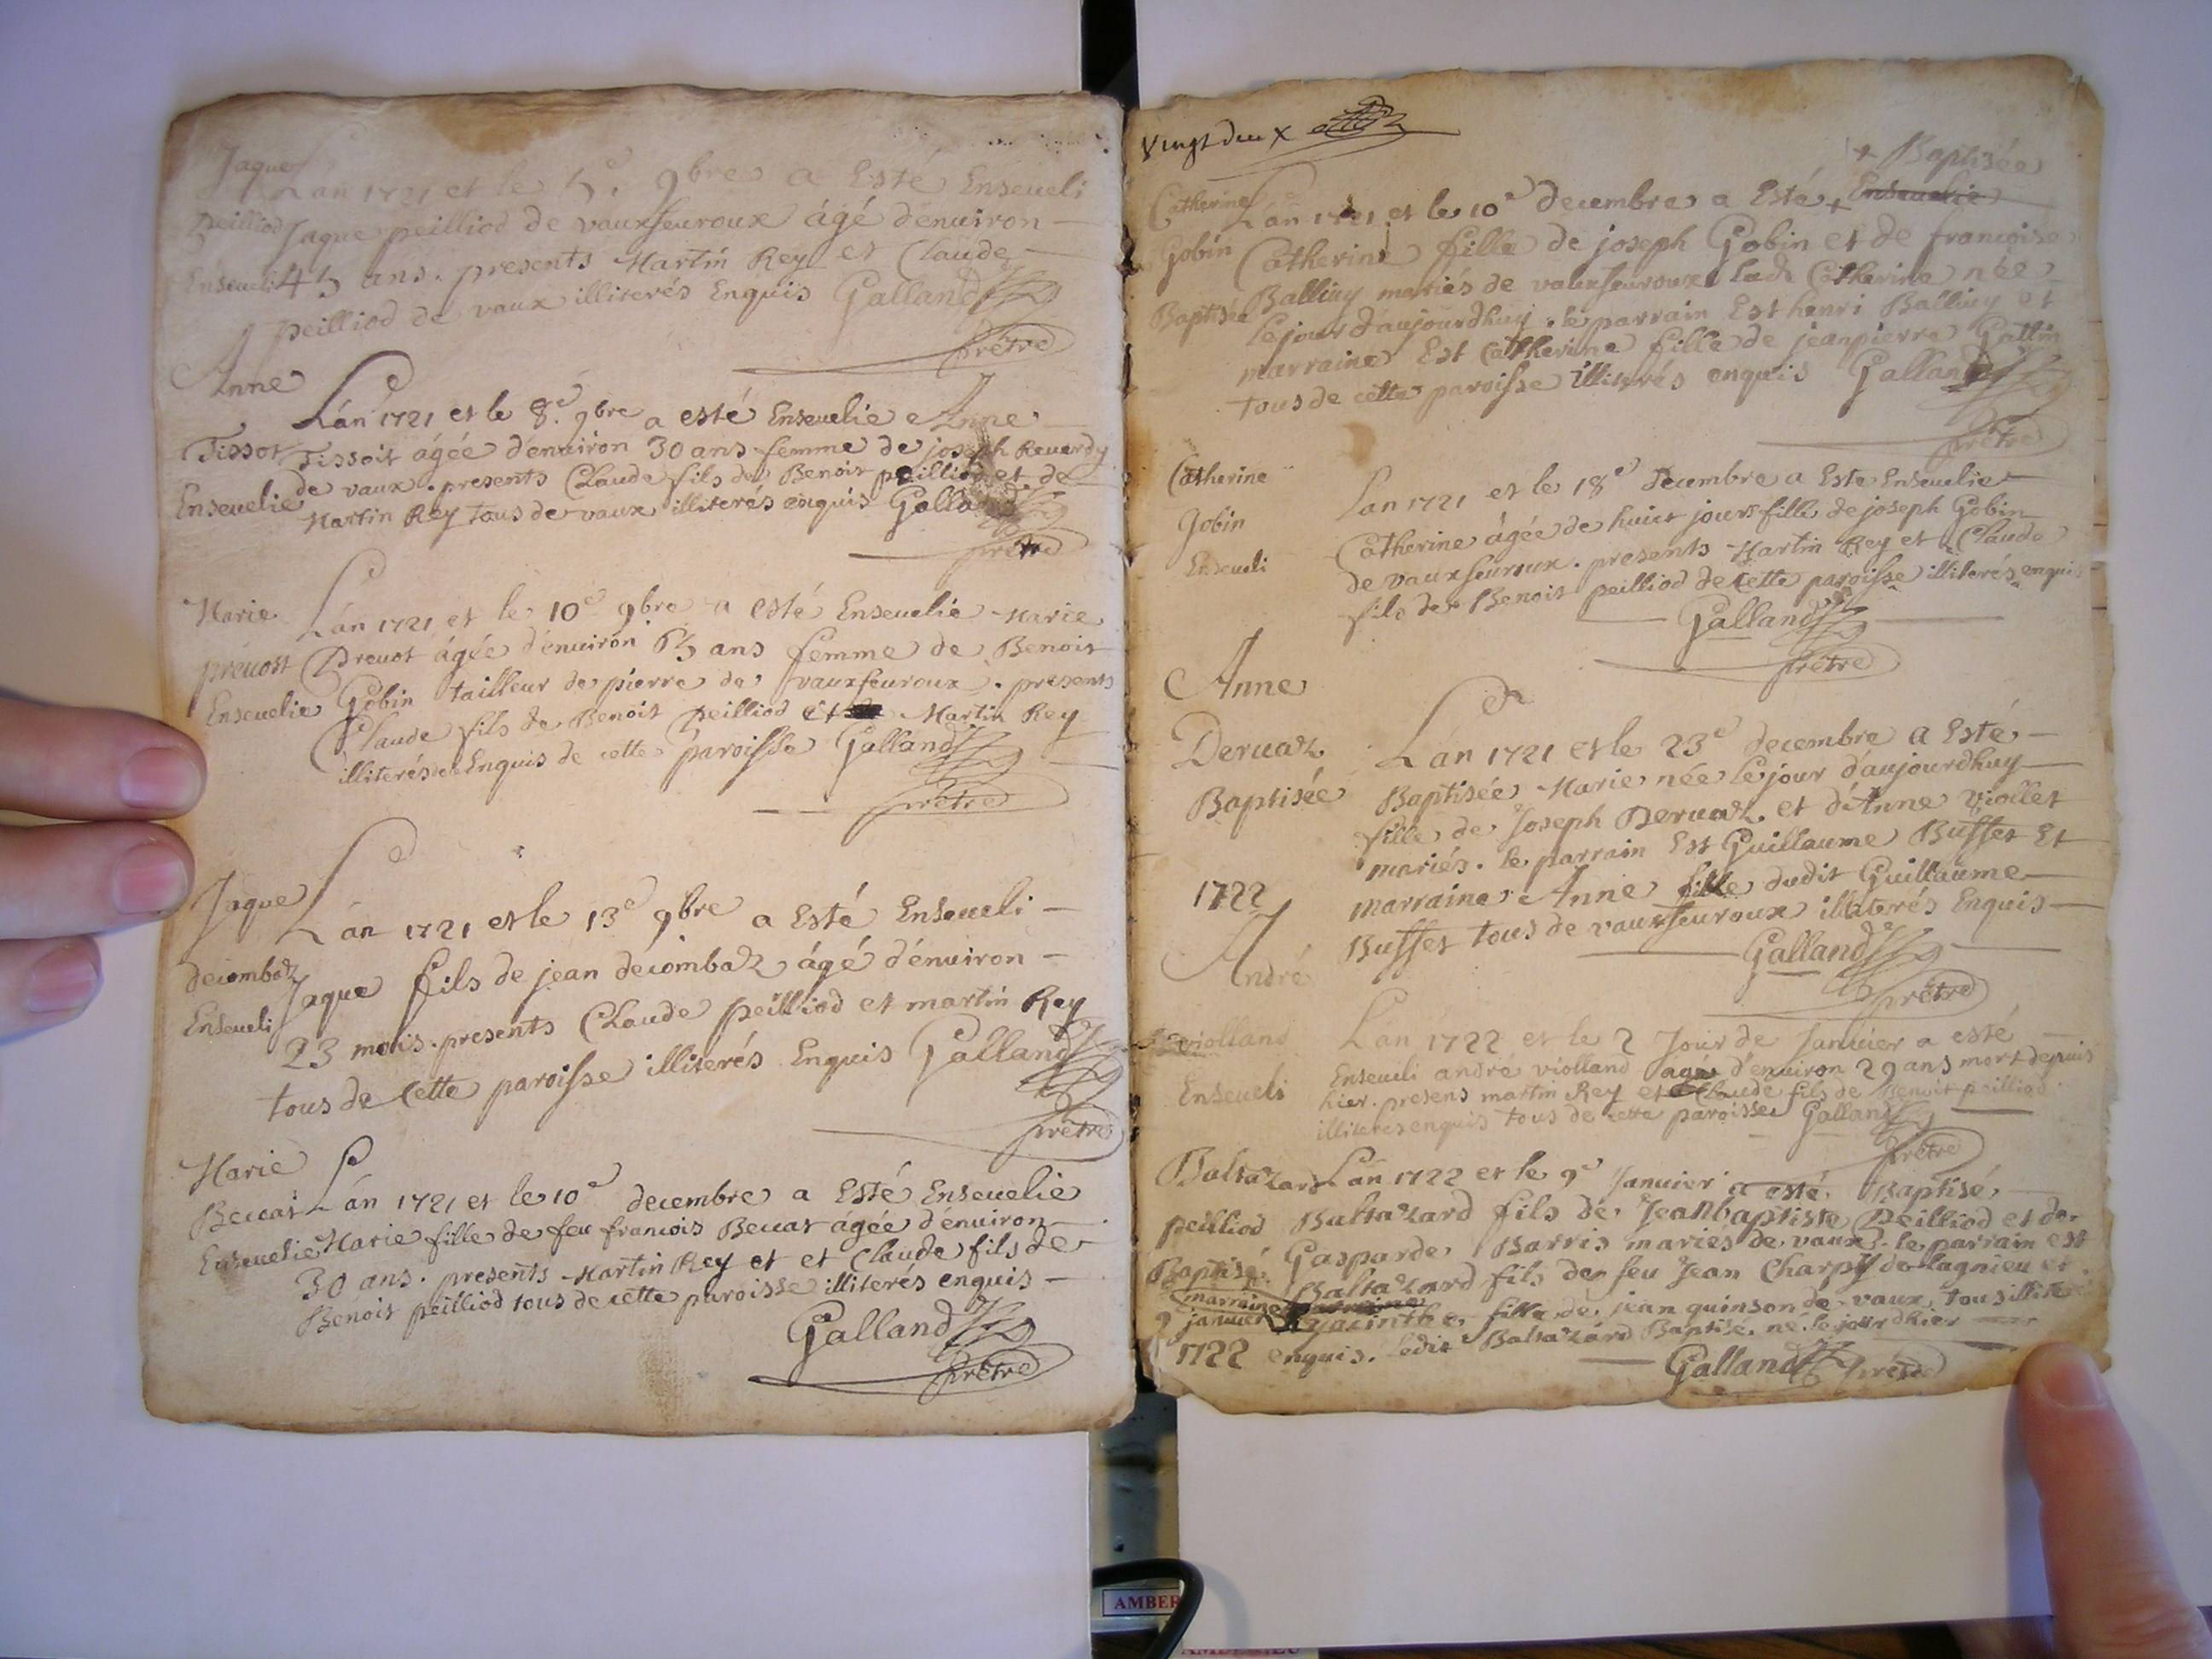 Jaque
Lán 1721 et le 5.e 9bre a Esté Enseueli
peilliod Jaque peilliod de vauxfeuroux ágé dénuiron
Enseueli 45 ans. presents Martin Rey et Claude
peilliod de vaux illiterés Enquis Galland
prêtre
Anne
Lán 1721 et le 8.e 9bre a esté Enseuelie Anne
Tissot Tissoit ágée dénuiron 30 ans femme de joseph Reuerdy
de vaux. presents Claude fils de Benoit peilliod et de
Enseuelie Martin Rey tous de vaux illiterés enquis Galland
prêtre
Marie Lán 1721 et le 10e 9bre a esté Enseuelie Marie
preuost Preuot ágée dénuiron 65 ans femme de Benoit
Enseuelie Gobin tailleur de pierre de vauxfeuroux. presents
Claude fils de Benoit peilliod et Martin Rey
illiterés Enquis de cette paroisse Galland
prêtre
Jaque Lán 1721 et le 13e 9bre a Esté Enseueli
decombaz Jaque fils de jean decombaz ágé dénuiron
Enseueli 23 mois. presents Claude peilliod et martin Rey
tous de Cette paroisse illiterés Enquis Galland
prêtre
Marie
Beccat Lán 1721 et le 10e decembre a Esté Enseuelie
Enseuelie Marie fille de feu francois Beccat ágée dénuiron
30 ans. presents Martin Rey et et Claude fils de
Benoit peilliod tous de cette paroisse illiterés enquis
Galland
prêtre
vingt deux
+ Baptisée
Catherine Lán 1721 et le 10e decembre a Esté + Enseuelie
Gobin Catherine fille de joseph Gobin et de francoise
Baptisée Balliuy mariés de vauxfeuroux Lade Catherine née
le jour d'aujourdhuy. le parrain Est henri Balliuy et
marraine Est Catherine fille de jeanpierre Gallin
tous de cette paroisse illiterés enquis Galland
prêtre
Catherine Lan 1721 et le 18e Decembre a Este Enseuelie
Gobin Catherine ágée de huict jours fille de joseph Gobin
Enseueli de vauxfeuroux. presents Martin Rey et Claude
fils de Benoit peilliod de Cette paroisse illiterés enquis
Galland
prêtre
Anne
Deruaz Lán 1721 et le 23e decembre a Esté
Baptisée Baptisée Marie née le jour d'aujourdhuy
fille de Joseph Deruaz et d'Anne viollet
mariés. le parrain Est Guillaume Buffet Et
1722 marraine Anne fille dudit Guillaume
Buffet tous de vauxfeuroux illiterés Enquis
Galland
prêtre
André
violland Lan 1722 et le 2 Jour de Januier a esté
Enseueli Enseueli andré violland agé dénuiron 29 ans mort depuis
hier. presens martin Rey et Claude fils de Benoit peilliod
illiterés enquis tous de cette paroisse Galland
prêtre
Baltazard Lán 1722 et le 9e Januier a esté Baptisé
peilliod Baltazard fils de Jeanbaptiste Peilliod et de
Baptisé Gasparde Barris maries de vaux. le parrain est
Baltazard fils de feu Jean Charpy de lagnieu et
marraine Hyacinthe fille de jean quinson de vaux tous illiteres
9 januier
1722 enquis. ledit Baltazard Baptisé né le jour dhier
Galland prêtre
AMBER